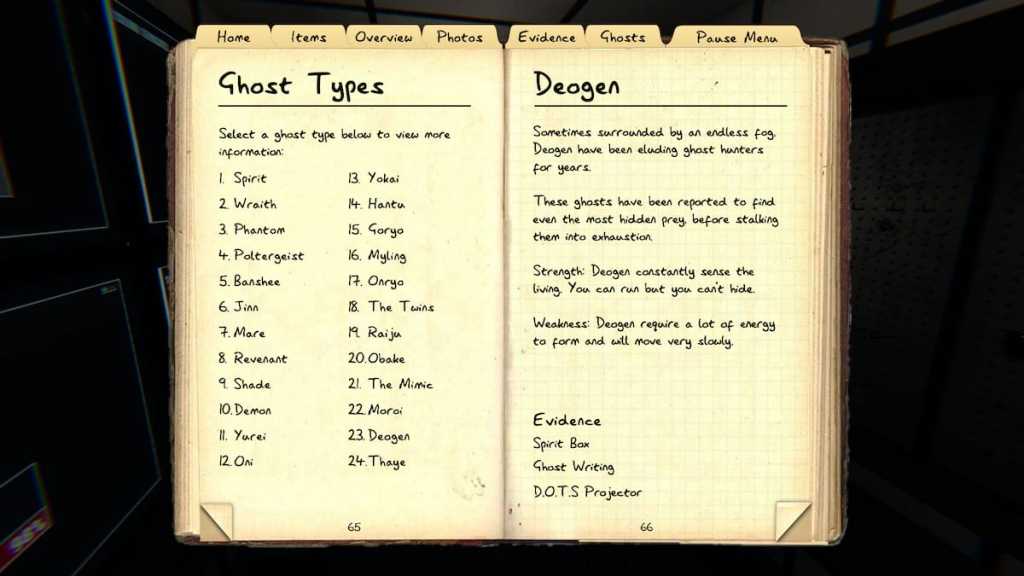 Home Items Overview Photos Evidence Ghosts Pause Menu
Ghost Types
Select a ghost type below to view more
information:
1. Spirit
2. Wraith
3. Phantom
4. Poltergeist
5. Banshee
6. Jinn
7. Mare
8. Revenant
9. Shade
10. Demon
11. Yurei
12. Oni
13. Yokai
14. Hantu
15. Goryo
16. Myling
17. Onryo
18. The Twins
19. Raiju
20. Obake
21. The Mimic
22. Moroi
23. Deogen
24. Thaye
65
Deogen
Sometimes surrounded by an endless fog.
Deogen have been eluding ghost hunters
for years.
These ghosts have been reported to find
even the most hidden prey, before stalking
them into exhaustion.
Strength: Deogen constantly sense the
living. You can run but you can't hide.
Weakness: Deogen require a lot of energy
to form and will move very slowly.
Evidence
Spirit Box
Ghost Writing
D.O.T.S Projector
66